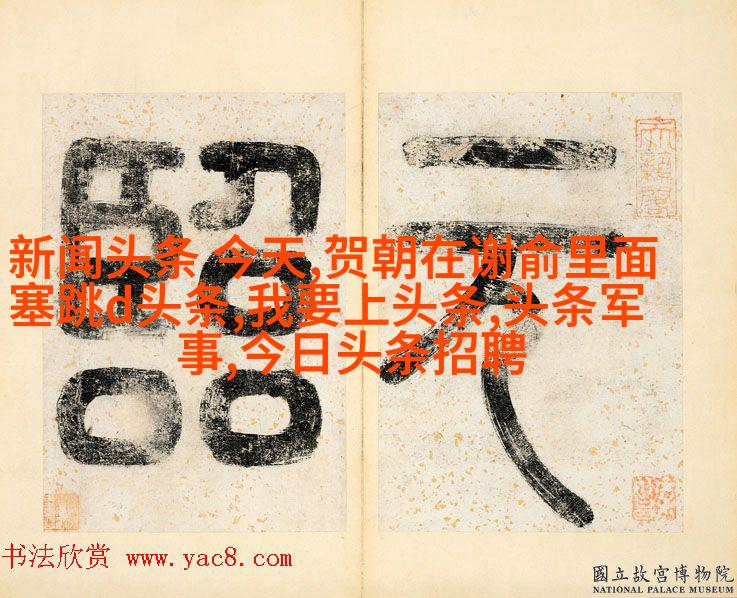 元
新闻头条 今天,贺朝在谢俞里面
塞跳d头条,我要上头条,头条军
事,今日头条招聘
书法欣赏 www.yac8.com
國立故宮博物院
NATIONAL PALACE MUSEUM